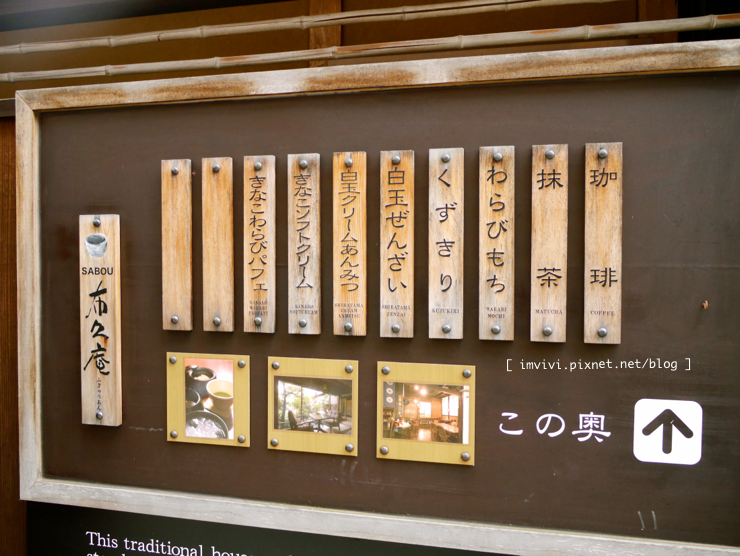 珈琲
COFFEE
抹茶
MATUCHA
わらびもち
WARABI
MOCHI
くずきり
KUZUKIRI
白玉ぜんざい
SHIRATAMA
ZENZAI
白玉クリームあんみつ
SHIRATAMA
CREAM
ANMITSU
きなこソフトクリーム
KINAKO
SOFTCREAM
きなこわらびパフェ
KINAKO
WARABI
PARFAIT
SABOU
布久庵
[ imvivi.pixnet.net/blog ]
この奥
This traditional